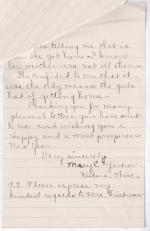 telling me that is
you got home. I know
her mother was not
She confided to me that it
was the only means the girls
had of getting home.
Thanking you for many
pleasant letters you have sent
to me and wishing you a
Happy and a most prosperous
New Year.
Very sincerely
Mary C.
Helena,
P.S. Please express my
kindest regards to Mrs. Friedman